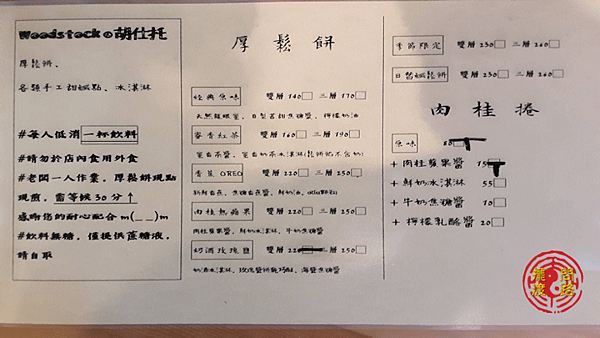 Woodstock の胡仕托
厚鬆餅、
各類手工甜鹹點、冰淇淋
#每人低消一杯飲料
#請勿於店內食用外食
#老闆一人作業，厚鬆餅現點
現煎，需等候30分↑
感謝您的耐心配合 m(__)m
#飲料無糖，僅提供蔗糖液，
請自取
厚鬆餅
經典原味 雙層 140 三層 170
天然龍眼蜜、自製舊甜焦糖醬、檸檬奶油
蜜香紅茶 雙層 160 三層 190
蜜香茶醬、蜜香奶茶冰淇淋(鬆餅純不含奶)
香蕉OREO 雙層 220 三層 250
新鮮香蕉、焦糖香蕉醬、鮮奶油、oreo
肉桂熱蘋果 雙層 220 三層 250
肉桂蘋果醬、鮮奶冰淇淋、牛奶焦糖醬
奶酒玫瑰鹽 雙層 220 三層 250
奶酒冰淇淋、玫瑰鹽、海鹽焦糖醬
季節限定 雙層 230 三層 260
日替鹹鬆餅 雙層 230 三層 260
肉桂捲
原味 80
+ 肉桂蘋果醬 15
+ 鮮奶冰淇淋 55
+ 牛奶焦糖醬 10
+ 檸檬乳酪醬 20
龍濃
問路